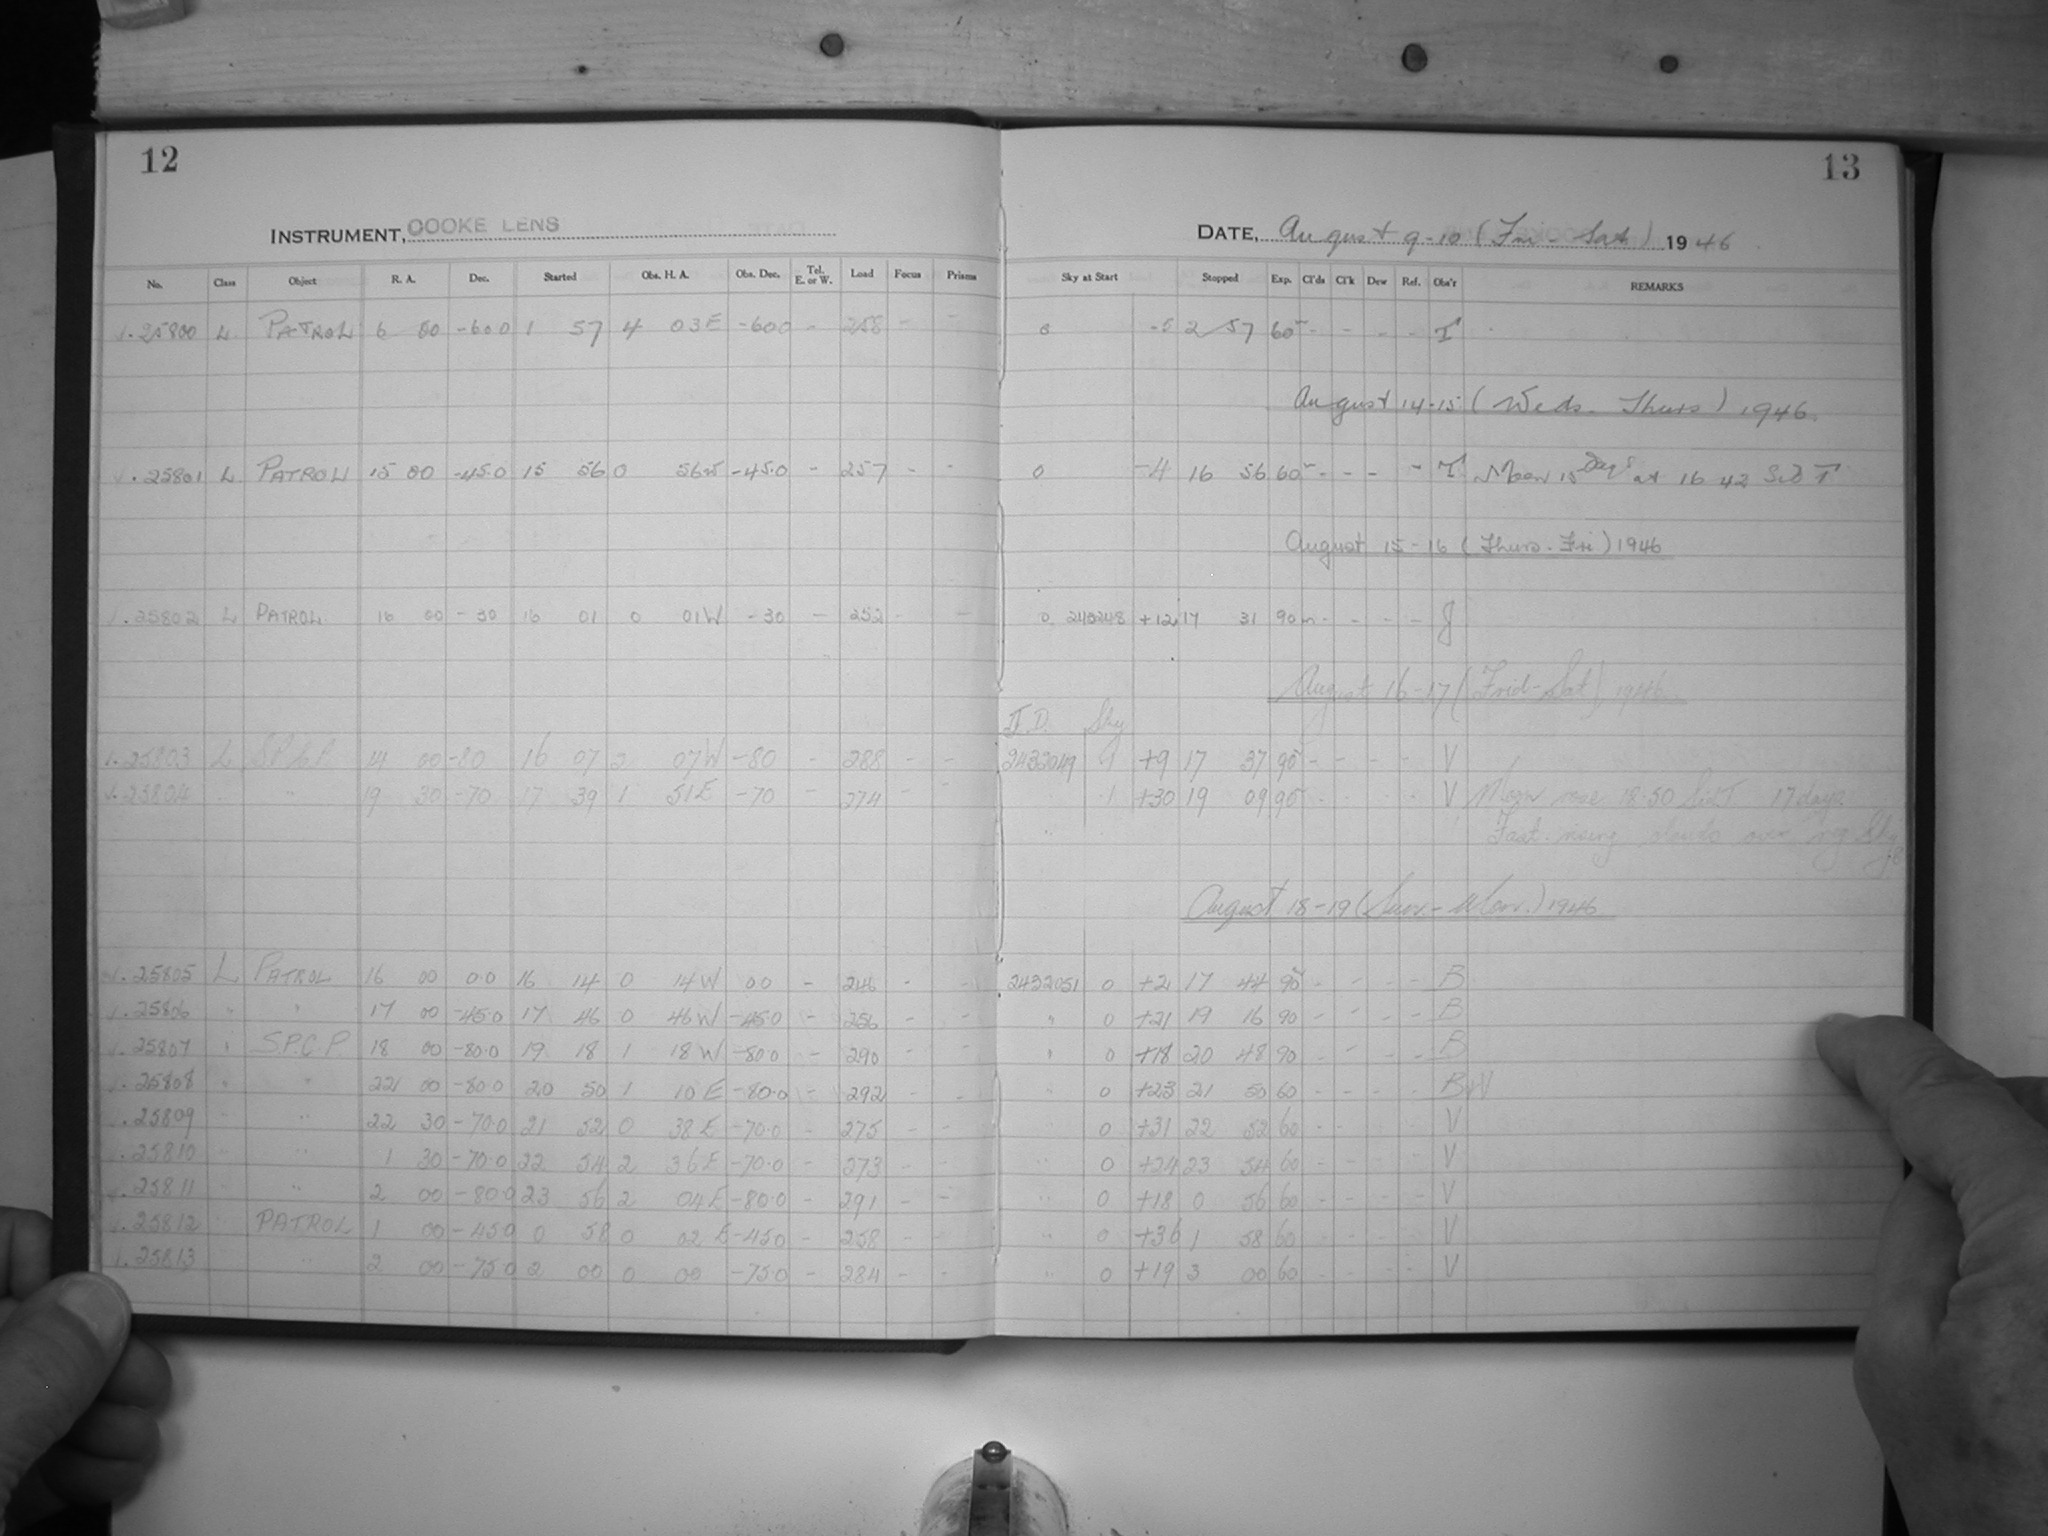 12
INSTRUMENT, COOKE LENS
No. Class Object R. A. Dec. Started Obs. H. A. Obs. Dec. Tel. E. or W. Load Focus Prisms
25800 L PATROL 6 00 -60 0 1 57 4 03 E -60 0 - 258 - -
25801 L PATROL 15 00 -45.0 15 56 0 56 W -45.0 - 257 - -
25802 L PATROL 16 00 -30 16 01 0 01 W -30 - 252 - -
25803 L S.P.C.P. 14 00 -80 16 07 2 07 W -80 - 288 - -
25804 " " 19 30 -70 17 39 1 51 E -70 - 274 - -
25805 L PATROL 16 00 00 16 14 0 14 W 00 - 246 - -
25806 " " 17 00 -45.0 17 46 0 46 W -45.0 - 256 - -
25807 " S.P.C.P. 18 00 -80.0 19 18 1 18 W -80.0 - 290 - -
25808 " " 22 00 -80.0 20 50 1 10 E -80.0 - 292 - -
25809 " " 22 30 -70.0 21 52 0 38 E -70.0 - 275 - -
25810 " " 1 30 -70.0 22 54 2 36 E -70.0 - 273 - -
25811 " " 2 00 -80.0 23 56 2 04 E -80.0 - 291 - -
25812 " PATROL 1 00 -45.0 0 58 0 02 E -45.0 - 258 - -
25813 " 2 00 -75.0 2 00 0 00 -75.0 - 284 - -
13
DATE, August 9-10 (Fri - Sat) 1946
Sky at Start Stopped Exp. Cl'ds Cl'k Dew Ref. Obs'r REMARKS
0 -5 2 57 60m - - - - T
August 14-15 (Weds. Thurs) 1946.
0 -4 16 56 60m - - - - T Moon 15 Days at 16 42 Sid T
August 15-16 (Thurs. Fri) 1946
0 +12 17 31 90m - - - - J
August 16-17 (Frid-Sat) 1946
J.D. Sky
2432049 1 +9 17 37 90m - - - - V
" 1 +30 19 09 90m - - - - V Moon rose 18.50 Sid T 17 days
Fast rising clouds over Sky
August 18-19 (Sun.-Mon.) 1946
2432051 0 +2 17 44 90m - - - - B
" 0 +21 19 16 90 - - - - B
" 0 +18 20 48 90 - - - - B
" 0 +23 21 50 60 - - - - B V
" 0 +31 22 52 60 - - - - V
" 0 +24 23 54 60 - - - - V
" 0 +18 0 56 60 - - - - V
" 0 +36 1 58 60 - - - - V
" 0 +19 3 00 60 - - - - V